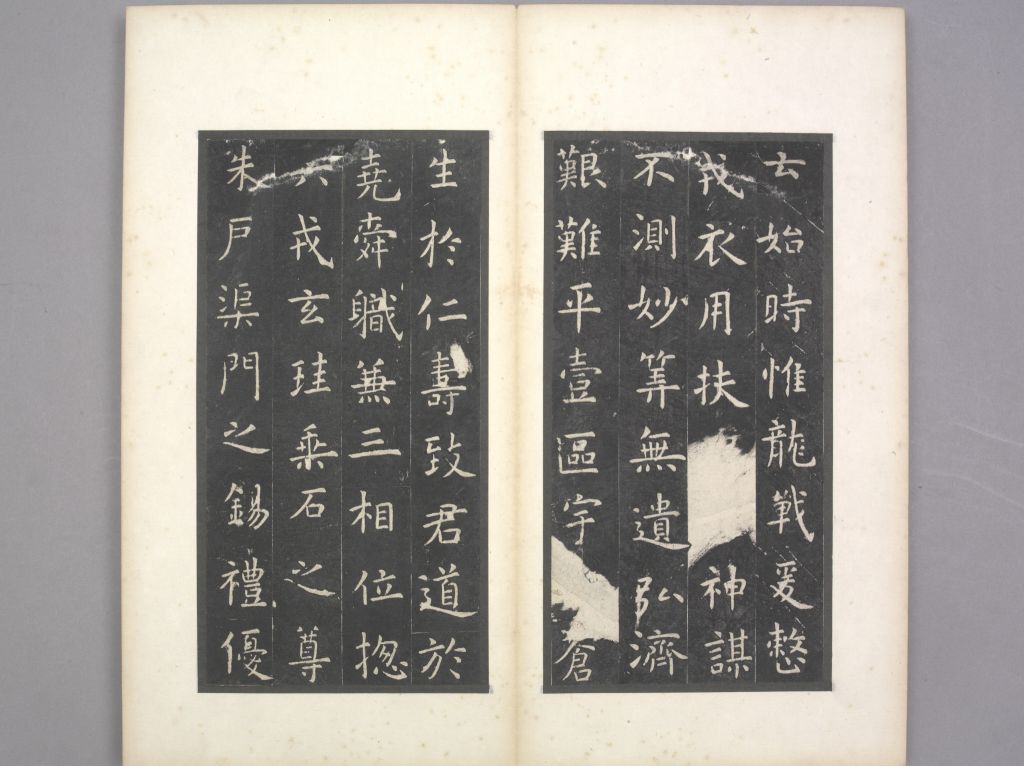 云始時惟龍戰爰憗
戎衣用扶神謀
不測妙筭無遺弘濟
艱難平壹區宇蒼
生於仁壽致君道於
堯舜職兼三相位揔
六戎玄珪乘石之尊
朱戶渠門之錫禮優